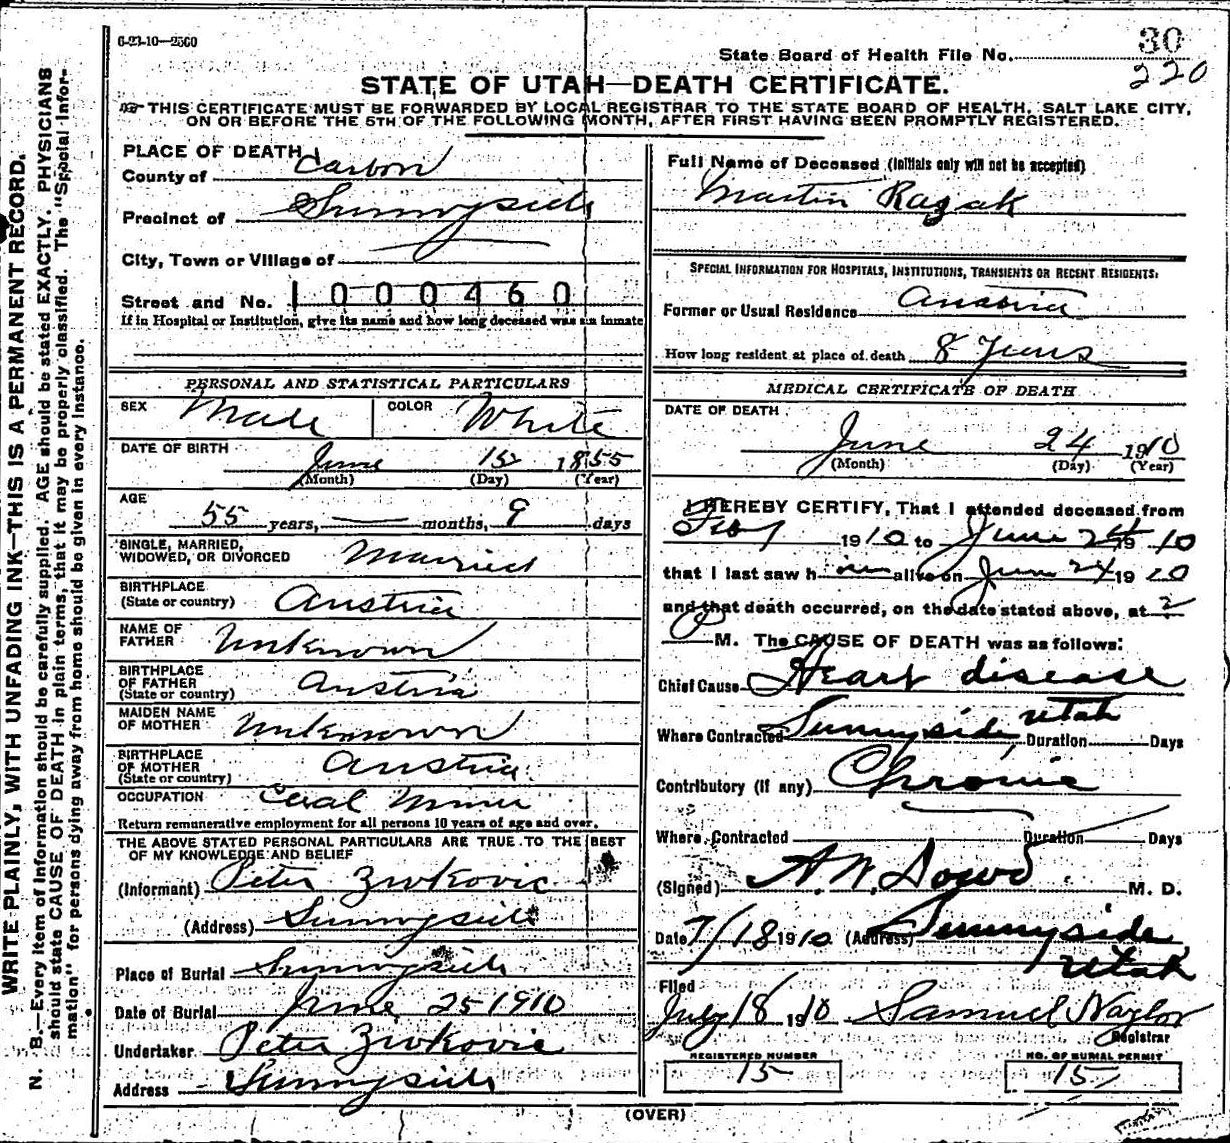 6-23-10—2500
State Board of Health File No. 30
220
STATE OF UTAH—DEATH CERTIFICATE.
THIS CERTIFICATE MUST BE FORWARDED BY LOCAL REGISTRAR TO THE STATE BOARD OF HEALTH, SALT LAKE CITY,
ON OR BEFORE THE 5TH OF THE FOLLOWING MONTH, AFTER FIRST HAVING BEEN PROMPTLY REGISTERED.
WRITE PLAINLY, WITH UNFADING INK—THIS IS A PERMANENT RECORD.
N. B.—Every item of information should be carefully supplied. AGE should be stated EXACTLY. PHYSICIANS
should state CAUSE OF DEATH in plain terms, that it may be properly classified. The "Special Infor-
mation" for persons dying away from home should be given in every instance.
PLACE OF DEATH
County of Carbon
Precinct of Sunnyside
City, Town or Village of
Street and No. 1000460
If in Hospital or Institution, give its name and how long deceased was an inmate
PERSONAL AND STATISTICAL PARTICULARS
SEX Male COLOR White
DATE OF BIRTH
June 15 1855
(Month) (Day) (Year)
AGE
55 years, — months, 9 days
SINGLE, MARRIED,
WIDOWED, OR DIVORCED Married
BIRTHPLACE
(State or country) Austria
NAME OF
FATHER Unknown
BIRTHPLACE
OF FATHER
(State or country) Austria
MAIDEN NAME
OF MOTHER Unknown
BIRTHPLACE
OF MOTHER
(State or country) Austria
OCCUPATION Coal Miner
Return remunerative employment for all persons 10 years of age and over.
THE ABOVE STATED PERSONAL PARTICULARS ARE TRUE TO THE BEST
OF MY KNOWLEDGE AND BELIEF
(Informant) Peter Zivkovic
(Address) Sunnyside
Place of Burial Sunnyside
Date of Burial June 25 1910
Undertaker Peter Zivkovic
Address Sunnyside
Full Name of Deceased (Initials only will not be accepted)
Martin Ragak
SPECIAL INFORMATION FOR HOSPITALS, INSTITUTIONS, TRANSIENTS OR RECENT RESIDENTS:
Former or Usual Residence Austria
How long resident at place of death 8 Years
MEDICAL CERTIFICATE OF DEATH
DATE OF DEATH
June 24 1910
(Month) (Day) (Year)
I HEREBY CERTIFY, That I attended deceased from
Feb 1910 to June 24 19 10
that I last saw him alive on June 24 1910
and that death occurred, on the date stated above, at 2
P M. The CAUSE OF DEATH was as follows:
Chief Cause Heart disease
Where Contracted Sunnyside Utah Duration Days
Contributory (if any) Chronic
Where Contracted Duration Days
(Signed) A. W. Dowd M. D.
Date 7/18 1910 (Address) Sunnyside
Utah
Filed
July 18 1910 Samuel Naylor
Registrar
REGISTERED NUMBER
15
NO. OF BURIAL PERMIT
15
(OVER)